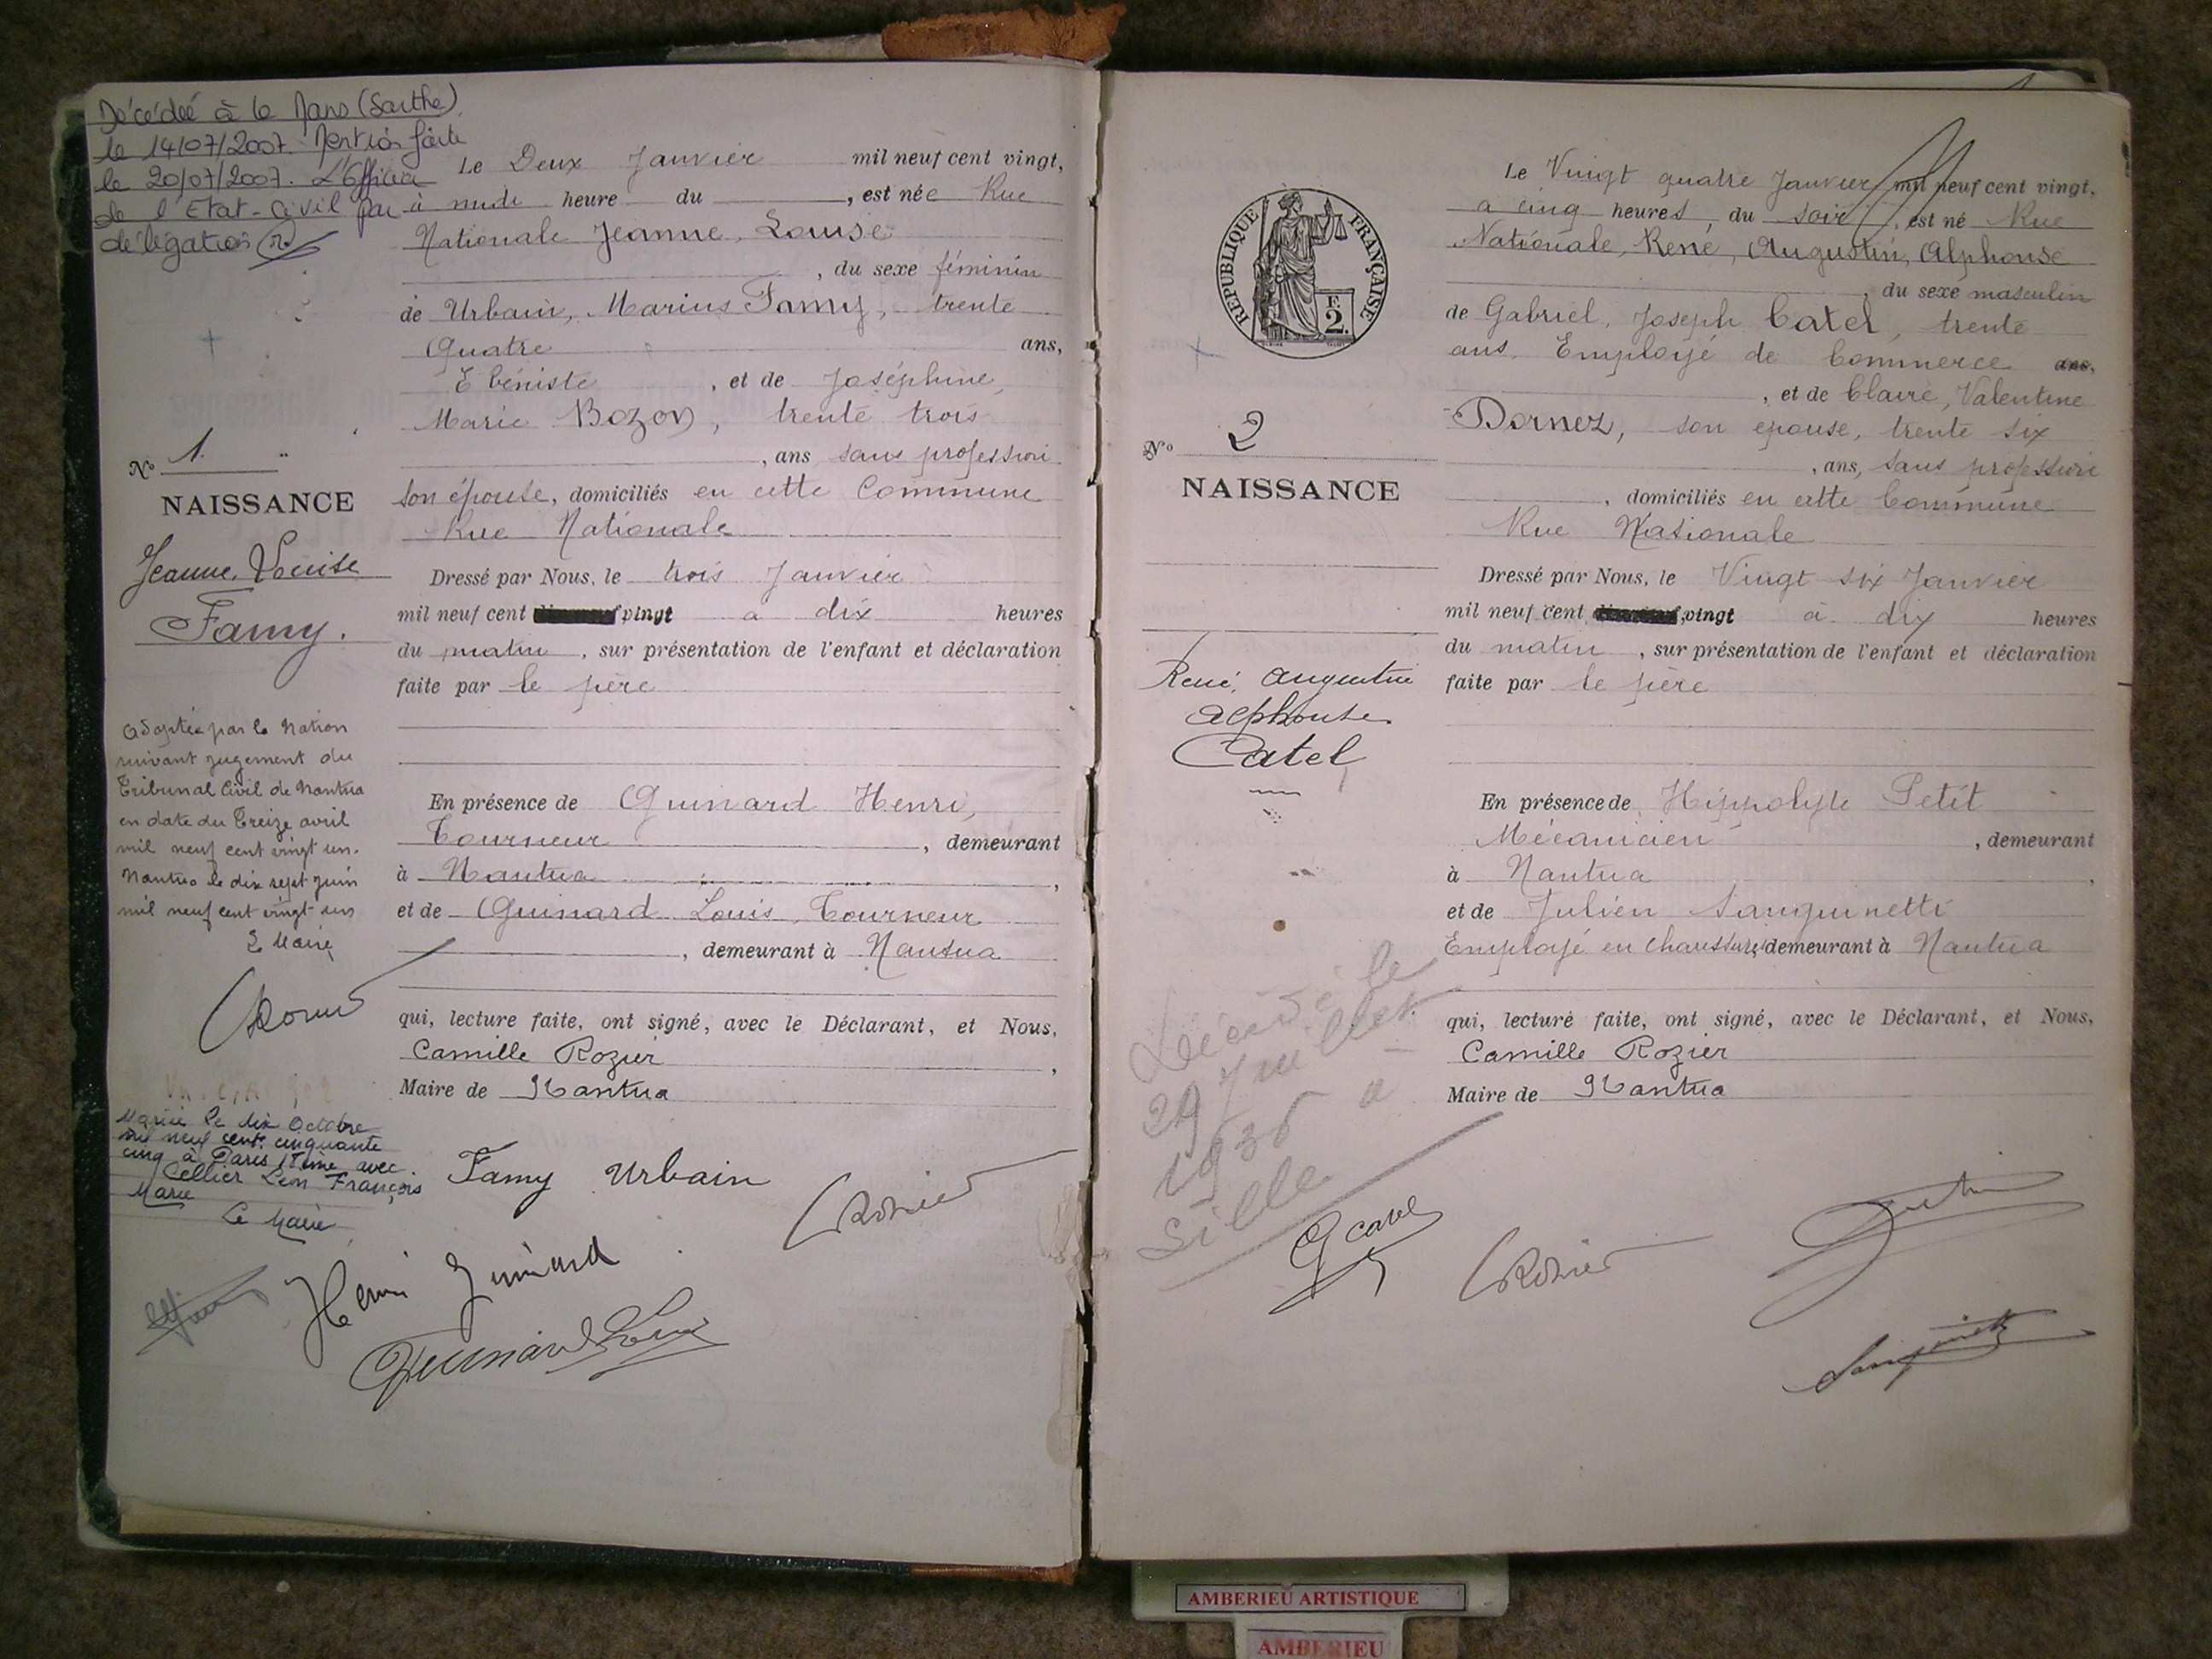 Décédée à le Mans (Sarthe)
le 14/07/2007. Mention faite
le 20/07/2007. L'Officier
de l'Etat-Civil par
délégation
N° 1.
NAISSANCE
Jeanne, Louise
Famy.
adoptée par la Nation
suivant jugement du
Tribunal Civil de Nantua
en date du treize avril
mil neuf cent vingt un.
Nantua le dix sept juin
mil neuf cent vingt un
Le Maire
CRozier
Mariée le dix Octobre
mil neuf cent cinquante
cinq à Paris 18ème avec
Cellier Léon François
Marie
Le Maire
Le Deux Janvier mil neuf cent vingt,
à midi heure du , est née Rue
Nationale Jeanne, Louise
, du sexe féminin
de Urbain, Marius Famy, trente
Quatre ans,
Ebéniste , et de Joséphine,
Marie Bozon, trente trois
, ans sans profession
son épouse, domiciliés en cette Commune
Rue Nationale
Dressé par Nous, le trois Janvier
mil neuf cent vingt à dix heures
du matin , sur présentation de l'enfant et déclaration
faite par le père
En présence de Guinard Henri,
Tourneur , demeurant
à Nantua ,
et de Guinard Louis, Tourneur
, demeurant à Nantua
qui, lecture faite, ont signé, avec le Déclarant, et Nous,
Camille Rozier ,
Maire de Nantua
Famy Urbain
CRozier
Henri Guinard
Guinard Louis
RÉPUBLIQUE FRANÇAISE
F.
2.
N° 2
NAISSANCE
René, Augustin
Alphonse
Catel
Décédé le
29 Juillet
1936 à
Sille
Le Vingt quatre Janvier mil neuf cent vingt,
à cinq heures, du soir, est né Rue
Nationale, René, Augustin, Alphonse
, du sexe masculin
de Gabriel, Joseph Catel, trente
ans Employé de Commerce ans,
, et de Claire, Valentine
Dornez, son épouse, trente six
, ans, sans profession
, domiciliés en cette Commune
Rue Nationale
Dressé par Nous, le Vingt six Janvier
mil neuf cent vingt à dix heures
du matin , sur présentation de l'enfant et déclaration
faite par le père
En présence de Hippolyte Petit
Mécanicien , demeurant
à Nantua ,
et de Julien Sanguinetti
Employé en chaussures demeurant à Nantua
qui, lecture faite, ont signé, avec le Déclarant, et Nous,
Camille Rozier
Maire de Nantua
G Catel
CRozier
Sanguinetti
AMBERIEU ARTISTIQUE
AMBERIEU